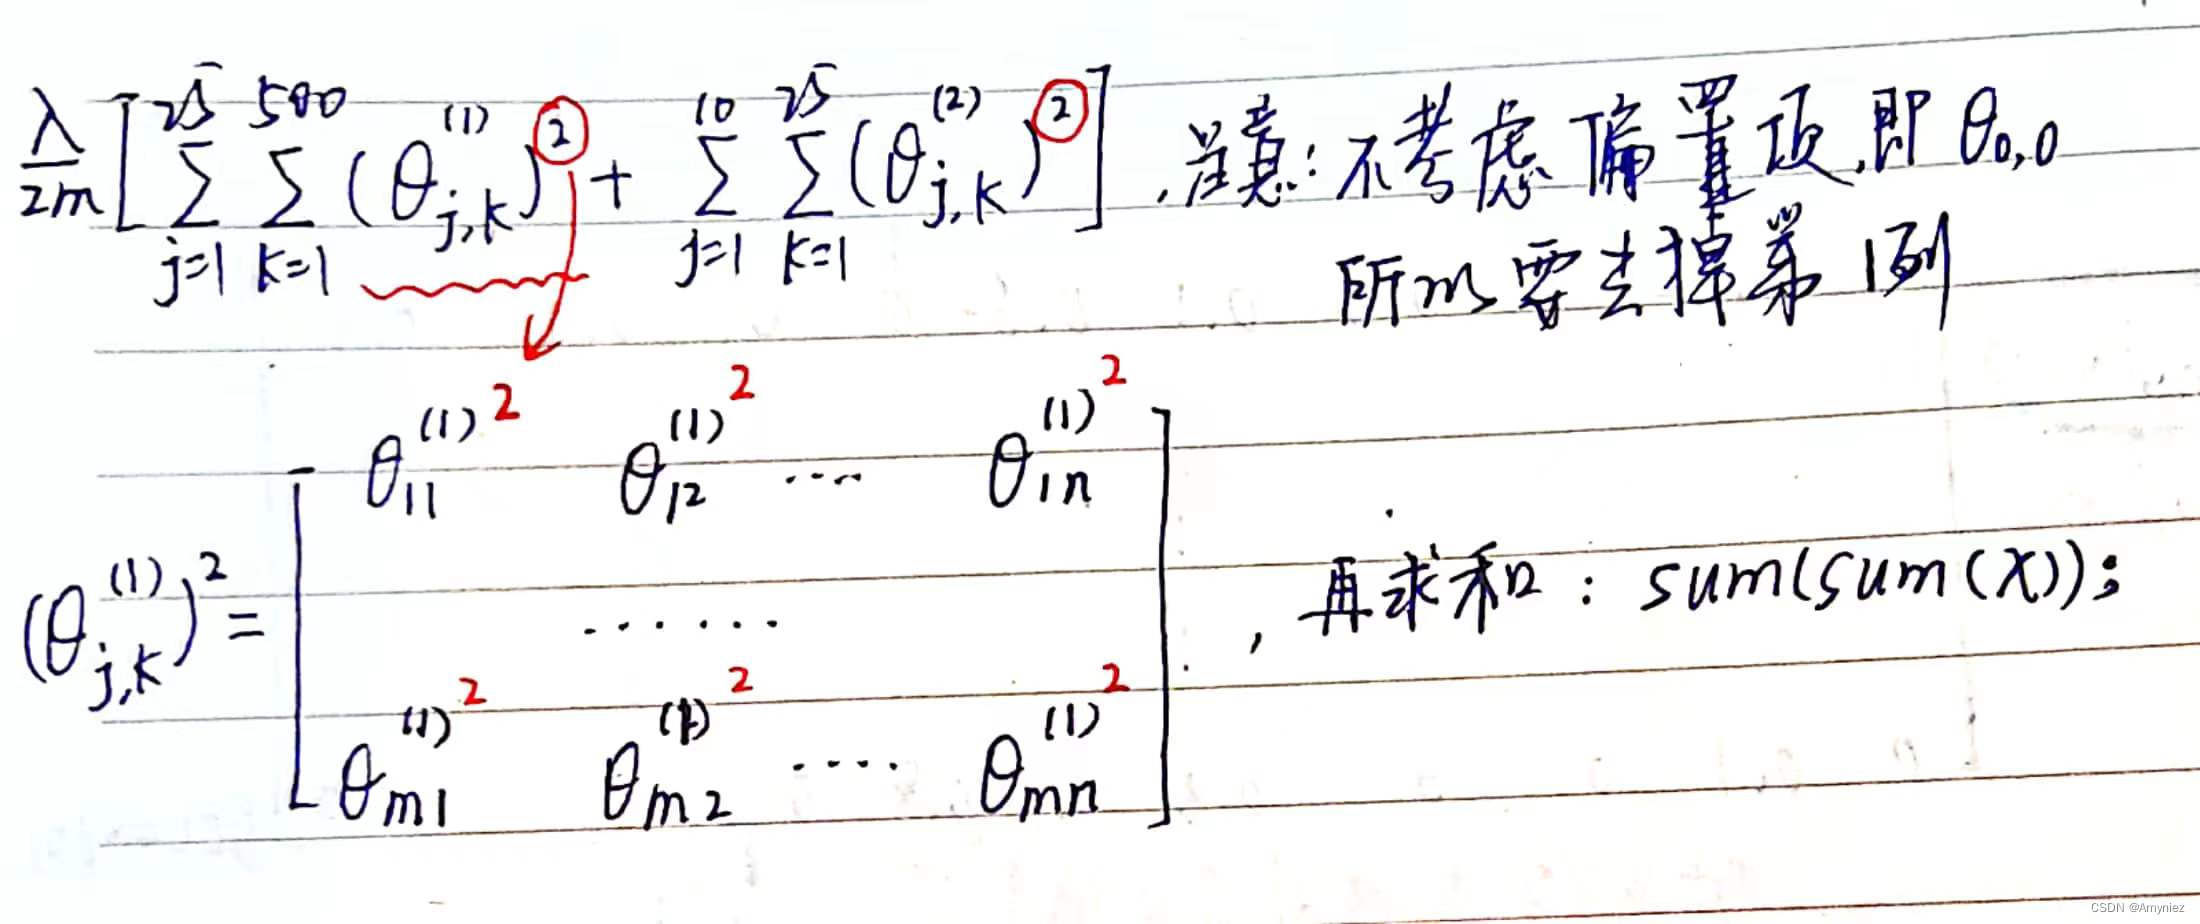 λ/2m [ 25∑j=1 500∑k=1 (θ(1)j,k)² + 10∑j=1 25∑k=1 (θ(2)j,k)² ] , 注意: 不考虑偏置项,即 θ0,0
所以要去掉第1列
(θ(1)j,k)² = [ θ11(1)² θ12(1)² ···· θ1n(1)²
······
θm1(1)² θm2(1)² ···· θmn(1)² ] , 再求和: sum(sum(X));
CSDN @Amyniez